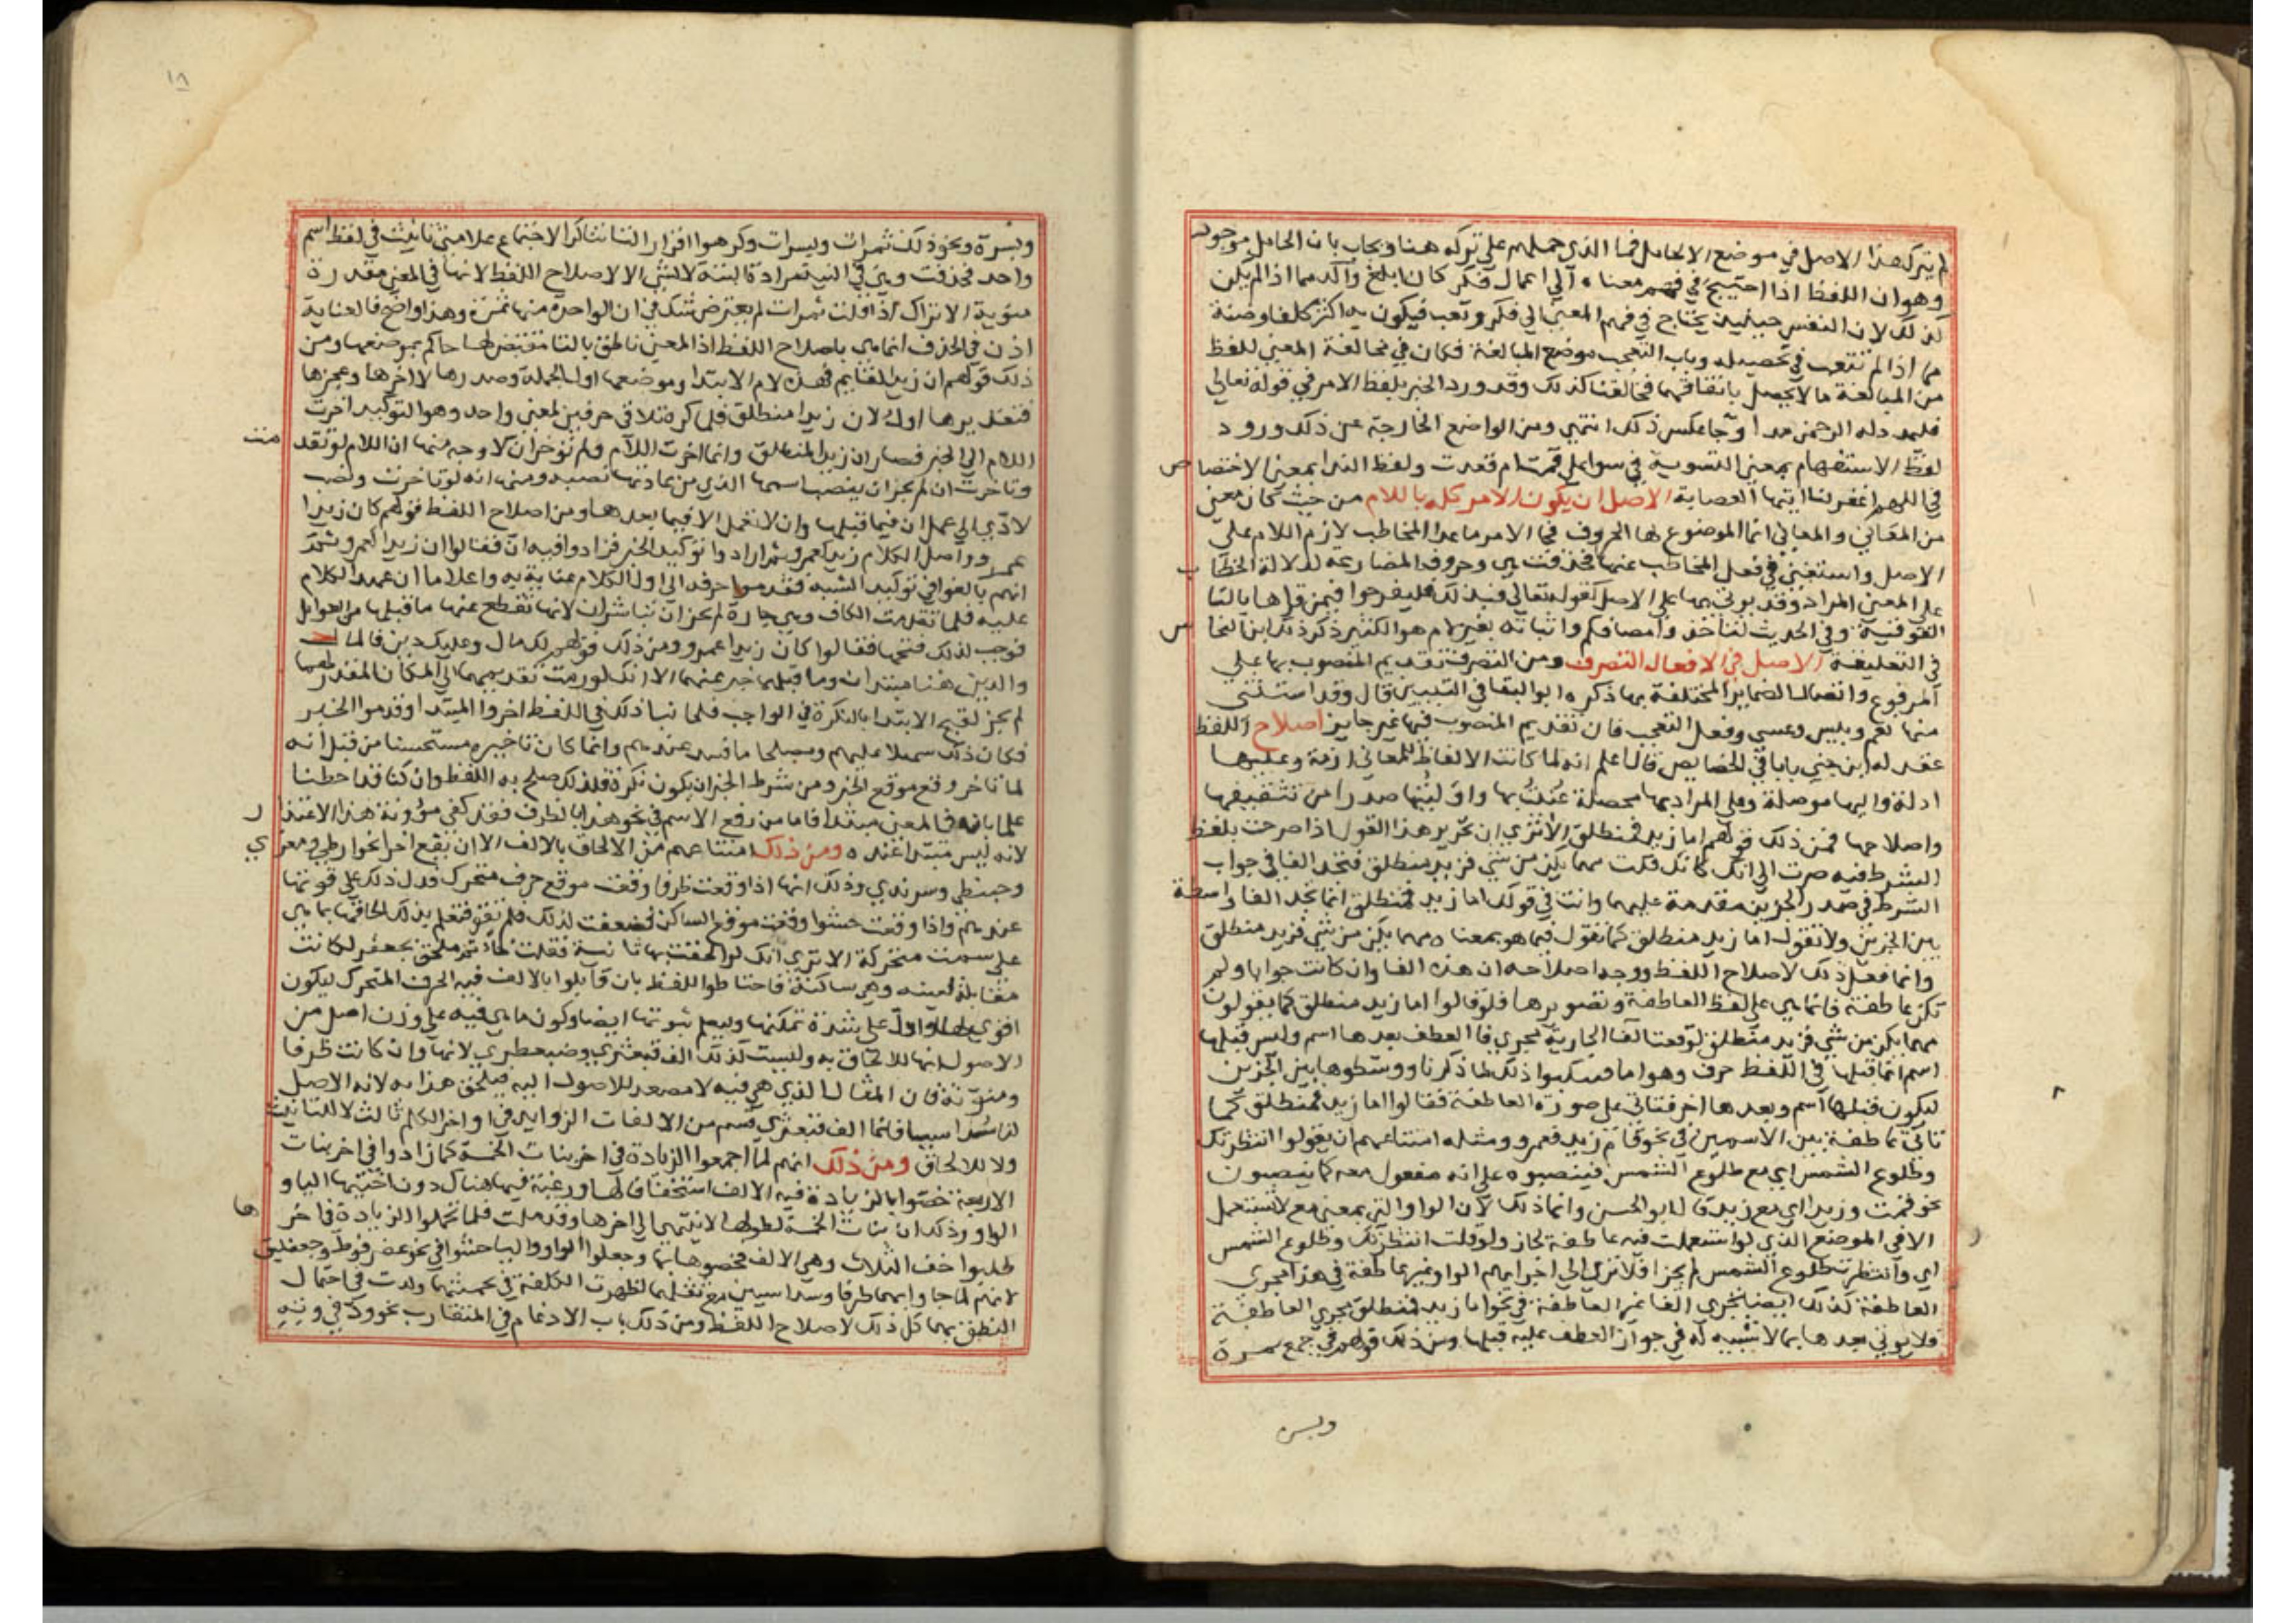 لم يترك هذا الاصل في موضع الا لحامل فما الذي حملهم على تركه هنا ويجاب بان الحامل موجود
وهو ان اللفظ اذا احتيج في فهم معناه الى اعمال فكر كان ابلغ وآكد مما اذا لم يكن
كذلك لان النفس حينئذ يحتاج في فهم المعنى الى فكر وتعب فيكون به اكثر كلفا وضنة
مما اذا لم تتعب في تحصيله وباب التعجب موضع المبالغة فكان في مخالفة المعنى للفظ
من المبالغة ما لا يحصل باتفاقهما فخالفنا كذلك وقد ورد الخبر بلفظ الامر في قوله تعالى
فليمدد له الرحمن مدا وجا عكس ذلك انتهى ومن المواضع الخارجة عن ذلك ورود
لفظ الاستفهام بمعنى التسوية في سوا علي اقمت ام قعدت ولفظ الندا بمعنى الاختصاص
في اللهم اغفر لنا ايتها العصابة الاصل ان يكون الامر كله باللام من حيث كان معنى
من المعاني والمعاني انما الموضوع لها الحروف فجا الامر ما عدا المخاطب لازم اللام على
الاصل واستغنى في فعل المخاطب عنها فحذفت هي وحروف المضارعة لدلالة الخطاب
على المعنى المراد وقد يوتى بها على الاصل كقوله تعالى فبذلك فليفرحوا فيمن قراها بالتا
الفوقية وفي الحديث لتاخذوا مصافكم واثباته بغير لام هو الكثير ذكر ذلك ابن النحاس
في التعليقة الاصل في الافعال التصرف ومن التصرف تقديم المنصوب بها على
المرفوع واتصال الضمائر المختلفة بها ذكره ابو البقا في التبيين قال وقد استثنى
منها نعم وبيس وعسى وفعل التعجب فان تقديم المنصوب فيها غير جايز اصلاح اللفظ
عقد له ابن جني بابا في الخصايص قال اعلم انه لما كانت الالفاظ للمعاني ازمة وعليها
ادلة واليها موصلة وعلى المراد بها محصلة عنيت بها واوليتها صدرا من تثقيفها
واصلاحها فمن ذلك قولهم اما زيد فمنطلق الا ترى ان تحرير هذا القول اذا صرحت بلفظ
الشرط فيه صرت الى انك كانك قلت مهما يكن من شي فزيد منطلق فتجد الفا في جواب
الشرط في صدر الجزين مقدمة عليهما وانت في قولك اما زيد فمنطلق انما تجد الفا واسطة
بين الجزين ولا تقول اما زيد منطلق كما تقول فيما هو بمعناه مهما يكن من شي فزيد منطلق
وانما فعل ذلك لاصلاح اللفظ ووجه اصلاحه ان هذه الفا وان كانت جوابا ولم
تكن عاطفة فانما هي على لفظ العاطفة وتصويرها فلو قالوا اما زيد منطلق كما يقولون
مهما يكن من شي فزيد منطلق لوقعت الفا الجارية مجرى فا العطف بعدها اسم وليس قبلها
اسم انما قبلها في اللفظ حرف وهو اما فتنكبوا ذلك لما ذكرنا ووسطوها بين الجزين
ليكون قبلها اسم وبعدها اخر فتاتي على صورة العاطفة فقالوا اما زيد فمنطلق كما
تاتي عاطفة بين الاسمين في نحو قام زيد فعمرو ومثله امتناعهم ان يقولوا انتظرتك
وطلوع الشمس اي مع طلوع الشمس فينصبوه على انه مفعول معه كما ينصبون
نحو قمت وزيدا اي مع زيد قال ابو الحسن وانما ذلك لان الواو التي بمعنى مع لا تستعمل
الا في الموضع الذي لو استعملت فيه عاطفة لجاز ولو قلت انتظرتك وطلوع الشمس
اي وانتظرتك طلوع الشمس لم يجز افلا ترى الى اجرايهم الواو غير عاطفة في هذا مجرى
العاطفة كذلك ايضا تجرى الفا غير العاطفة في نحو اما زيد فمنطلق مجرى العاطفة
فلا يوتى بعدها بما لا شبيه له في جواز العطف عليه قبلها ومن ذلك قولهم في جمع تمرة
وبسر
١٨
وبسرة ونحو ذلك تمرات وبسرات وكرهوا اقرار التا تناكرا لاجتماع علامتي تانيث في لفظ اسم
واحد فحذفت وهي في النية مرادة البتة لا لشي الا لاصلاح اللفظ لانها في المعنى مقدرة
منوية الا تراك اذا قلت تمرات لم يعترض شك في ان الواحدة منها تمرة وهذا واضح فالعناية
اذن في الحذف انما هي باصلاح اللفظ اذ المعنى ناطق بالتا مقتض لها حاكم بموضعها ومن
ذلك قولهم ان زيدا لقايم فهذه لام الابتدا وموضعها اول الجملة وصدرها لا اخرها وعجزها
فتقديرها اول لان زيدا منطلق فلما كره تلاقي حرفين لمعنى واحد وهو التوكيد اخرت
اللام الى الخبر فصار ان زيدا لمنطلق وانما اخرت اللام ولم توخر ان لاوجه منها ان اللام لو تقدمت
وتاخرت ان لم يجز ان ينصب اسمها الذي من عادتها نصبه ومنها انه لو تاخرت ونصب
لادى الى عمل ان فيما قبلها وان لا تعمل الا فيما بعدها ومن اصلاح اللفظ قولهم كان زيدا
عمرو واصل الكلام زيد كعمرو ثم ارادوا توكيد الخبر فزادوا فيه ان فقالوا ان زيدا كعمرو ثم
انهم بالغوا في توكيد الشبه فقدموا حرفه الى اول الكلام عناية به واعلاما ان عقد الكلام
عليه فلما تقدمت الكاف وهي جارة لم يجز ان تباشر ان لانها تقطع عنها ما قبلها من العوامل
فوجب لذلك فتحها فقالوا كان زيدا عمرو ومن ذلك قولهم لك مال وعليك دين فالمال
والدين هنا مبتدان وما قبلهما خبر عنهما الا انك لو رمت تقديمهما الى المكان المقدر لهما
لم يجز لقبح الابتدا بالنكرة في الواجب فلما نبا ذلك في اللفظ اخروا المبتدا وقدموا الخبر
فكان ذلك سهلا عليهم ومصلحا ما فسد عندهم وانما كان تاخيره مستحسنا من قبل انه
لما تاخر وقع موقع الخبر ومن شرط الخبر ان يكون نكرة فلذلك صلح به اللفظ وان كنا قد احطنا
علما بانه في المعنى مبتدا فاما من رفع الاسم في نحو هذا بالظرف فقد كفى مؤونة هذا الاعتذار
لانه ليس مبتدا عنده ومن ذلك امتناعهم من الالحاق بالالف الا ان يقع اخرا نحو ارطى ومعزى
وحبنطى وسرندى وذلك انها اذا وقعت طرفا وقعت موقع حرف متحرك فدل ذلك على قوتها
عندهم واذا وقعت حشوا وقعت موقع الساكن فضعفت لذلك فلم تقو فتعلم بذلك الحاقها بما هي
على سمت متحركه الا ترى انك لو الحقت بها ثانية فقلت خاتم ملحق بجعفر لكانت
مقابلة لعينه وهي ساكنة فاحتاطوا للفظ بان قابلوا بالالف فيه الحرف المتحرك ليكون
اقوى لها وادل على شدة تمكنها وليعلم ثبوتها ايضا وكون ما هي فيه على وزن اصل من
الاصول انها للالحاق به وليست كذلك الف قبعثرى وضبغطرى لانها وان كانت طرفا
ومنونة فان المثال الذي هي فيه لا مصعد للاصول اليه فيلحق هذا به لانه لا اصل
لنا سداسيا فانما الف قبعثرى قسم من الالفات الزوايد في اواخر الكلم ثالث لا للتانيث
ولا للالحاق ومن ذلك انهم لما اجمعوا الزيادة في اخر بنات الخمسة كما زادوا في اخر بنات
الاربعة خصوا بالزيادة فيه الالف استخفافا لها ورغبة فيها هناك دون اختيها اليا و
الواو وذلك ان بنات الخمسة لطولها لا ينتهى الى اخرها وقد ملت فلما تحملوا الزيادة في اخرها
طلبوا اخف الثلاث وهي الالف فخصوها بها وجعلوا الواو واليا حشوا في نحو عضرفوط وجعفليق
لانهم لو جاوا بهما طرفا وسداسيين مع ثقلهما لظهرت الكلفة في تجشمهما وكدت في احتمال
النطق بهما كل ذلك لاصلاح اللفظ ومن ذلك باب الادغام في المتقارب نحو ود في وتد